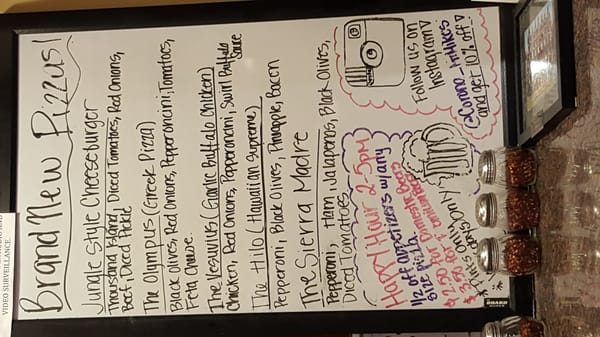 Brand New Pizzas!
Jungle Style Cheeseburger
Thousand Island, Diced Tomatoes, Red Onions,
Beef, Diced Pickle
The Olympus (Greek Pizza)
Black Olives, Red Onions, Pepperoncini, Tomatoes,
Feta Cheese
The Vesuvius (Garlic Buffalo Chicken)
Chicken, Red Onions, Pepperoncini, Swirl Buffalo
Sauce
The Hilo (Hawaiian Supreme)
Pepperoni, Black Olives, Pineapple, Bacon
The Sierra Madre
Pepperoni, Ham, Jalapenos, Black Olives,
Diced Tomatoes
Follow us on
Instagram
and get 10% off
Happy Hour 2-5pm
1/2 off appetizers w/any
size pizza.
Pint Domestic Beers
$3.50
only
VIDEO SURVEILLANCE
BOARD